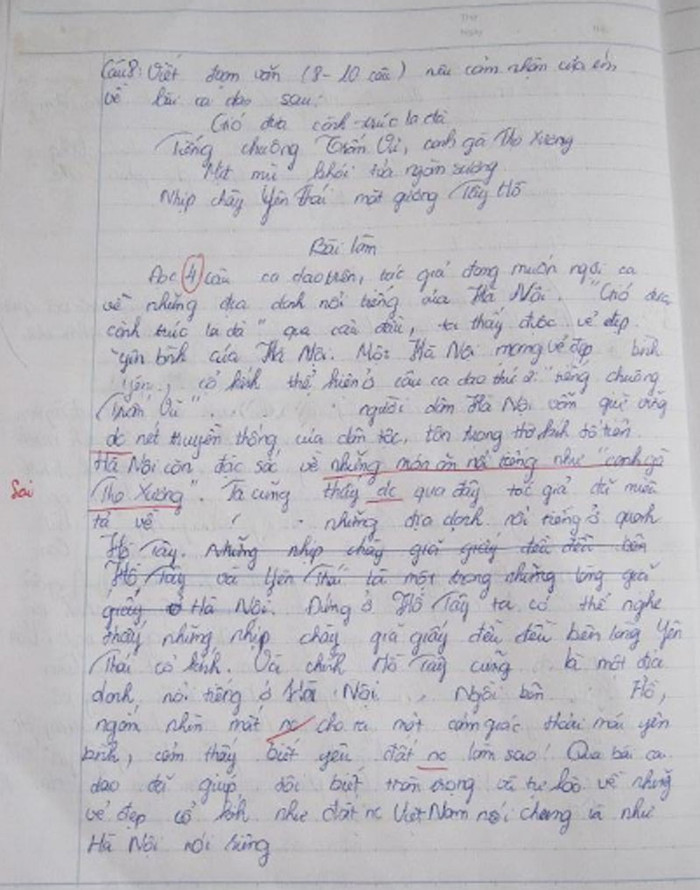 Câu 8: Viết đoạn văn (8-10 câu) nêu cảm nhận của em
về bài ca dao sau:
Gió đưa cành trúc la đà
Tiếng chuông Trấn Vũ, canh gà Thọ Xương
Mịt mù khói tỏa ngàn sương
Nhịp chày Yên Thái mặt gương Tây Hồ
Bài làm
Đọc 4 câu ca dao trên, tác giả đang muốn ngợi ca
về những địa danh nổi tiếng của Hà Nội. "Gió đưa
cành trúc la đà" qua câu đầu, ta thấy được vẻ đẹp
yên bình của Hà Nội. Một Hà Nội mang vẻ đẹp bình
yên, cổ kính thể hiện ở câu ca dao thứ 2: "tiếng chuông
Trấn Vũ" người dân Hà Nội vẫn giữ vững
dc nét truyền thống của dân tộc, tôn trọng thờ kính tổ tiên.
Hà Nội còn đặc sắc về những món ăn nổi tiếng như "canh gà
Sai
Thọ Xương". Ta cũng thấy dc qua đây tác giả đã miêu
tả về những địa danh nổi tiếng ở quanh
Hồ Tây. Những nhịp chày giã giấy đều đều bên
Hồ Tây và Yên Thái là một trong những làng giã
giấy ở Hà Nội. Đứng ở Hồ Tây ta có thể nghe
thấy những nhịp chày giã giấy đều đều bên làng Yên
Thái cổ kính. Và chính Hồ Tây cũng là một địa
danh nổi tiếng ở Hà Nội. Ngồi bên Hồ,
ngắm nhìn mặt nc cho ta một cảm giác thoải mái yên
bình, cảm thấy biết yêu đất nc làm sao! Qua bài ca
dao đã giúp tôi biết trân trọng và tự hào về những
vẻ đẹp cổ kính như đất nc Việt Nam nói chung và như
Hà Nội nói riêng